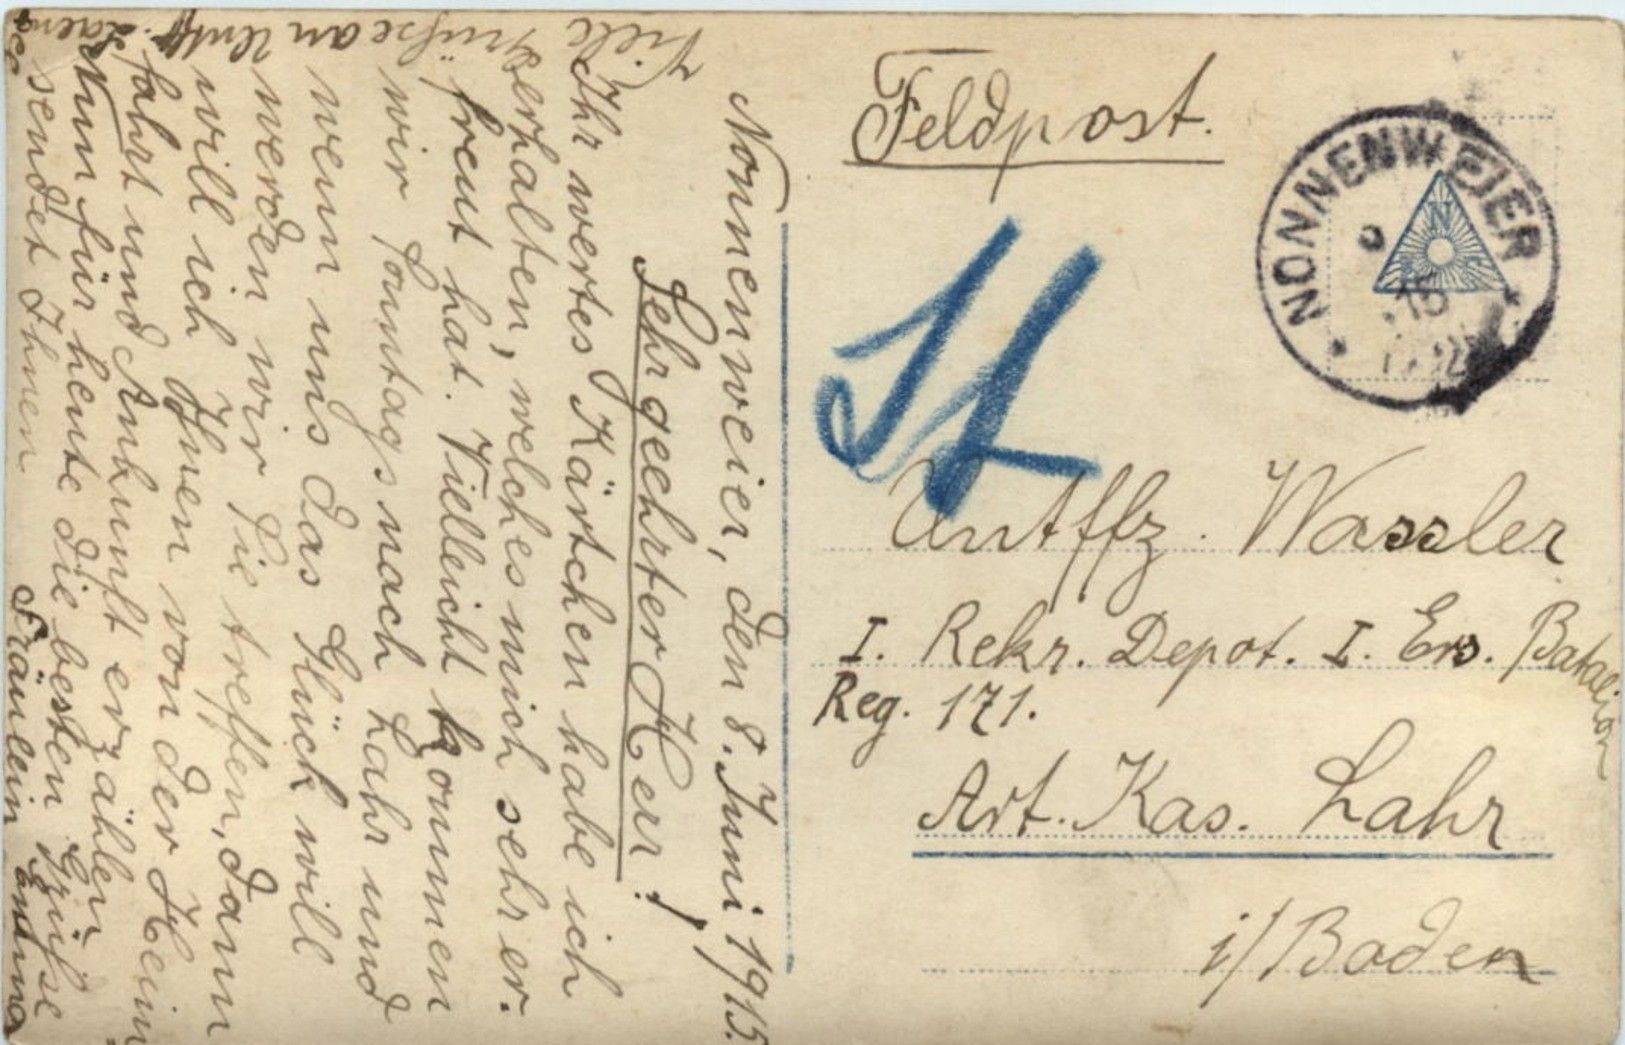 Feldpost.
NONNENWEIER
N
15
Untffz. Wassler
I. Rekr. Depot. I. Ers. Batalion
Reg. 171.
Art. Kas. Lahr
i/Baden
Nonnenweier, den 8. Juni 1915.
Sehr geehrter Herr!
Ihr wertes Kärtchen habe ich
erhalten, welches mich sehr er-
freut hat. Vielleicht kommen
wir Sonntags nach Lahr und
wenn uns das Glück will
werden wir Sie treffen, dann
will ich Ihnen von der Heim
fahrt und Ankunft erzählen
Nun für heute die besten Grüße
sendet Ihnen
Fräulein Anna
Viele Grüße an Untff.